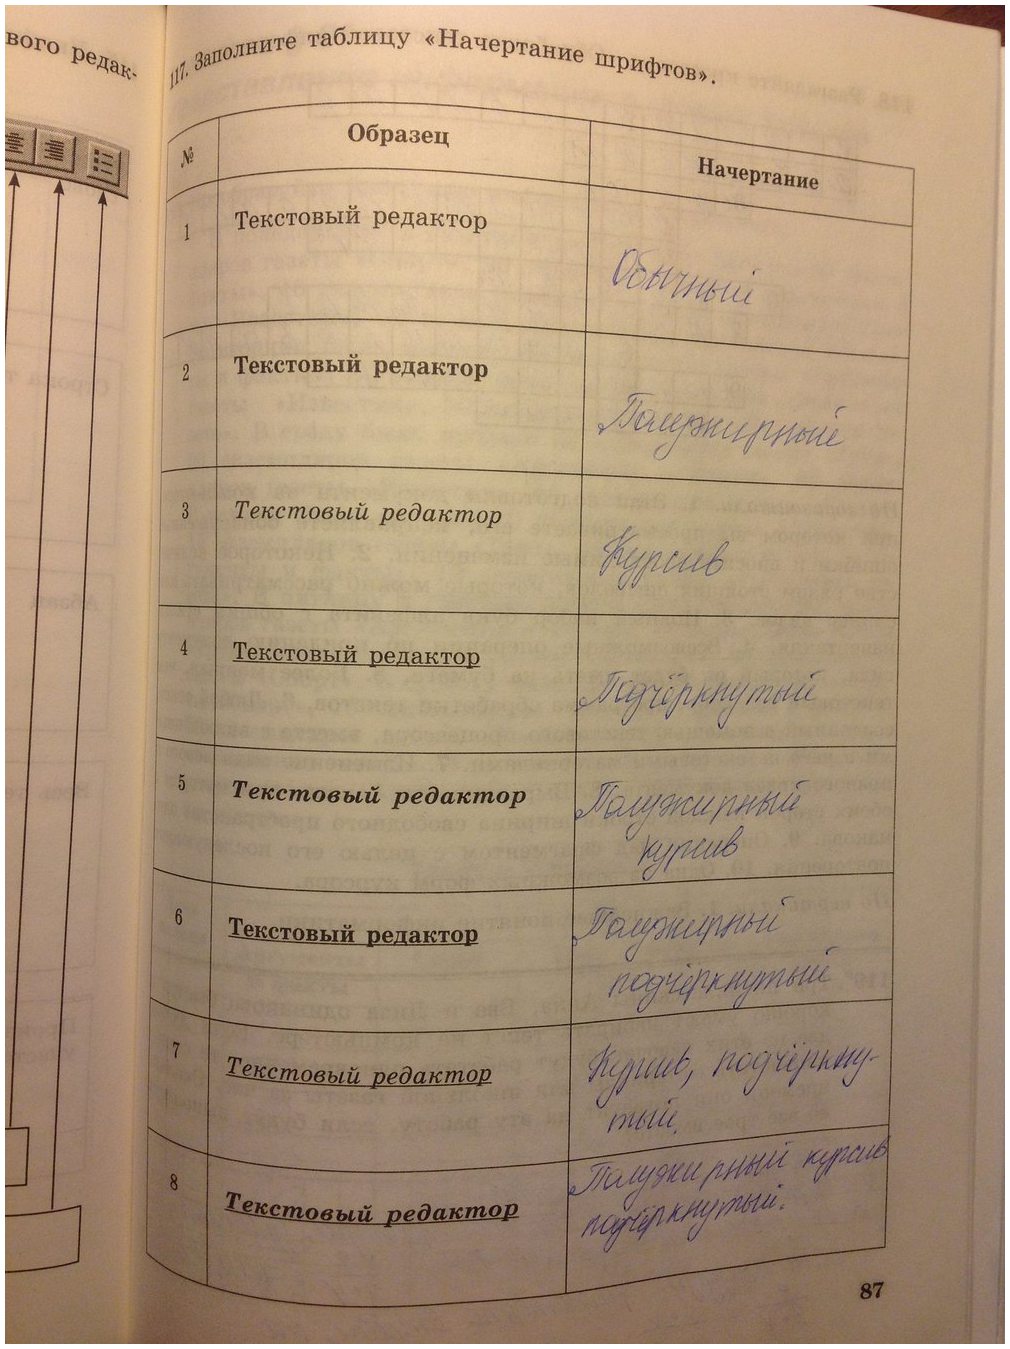 вого редак-
117. Заполните таблицу «Начертание шрифтов».
№ Образец Начертание
1 Текстовый редактор
Обычный
2 Текстовый редактор
Полужирный
3 Текстовый редактор
Курсив
4 Текстовый редактор
Подчёркнутый
5 Текстовый редактор Полужирный
курсив
6 Текстовый редактор Полужирный
подчёркнутый
7 Текстовый редактор Курсив, подчёркну-
тый.
8 Текстовый редактор Полужирный курсив
подчёркнутый.
87